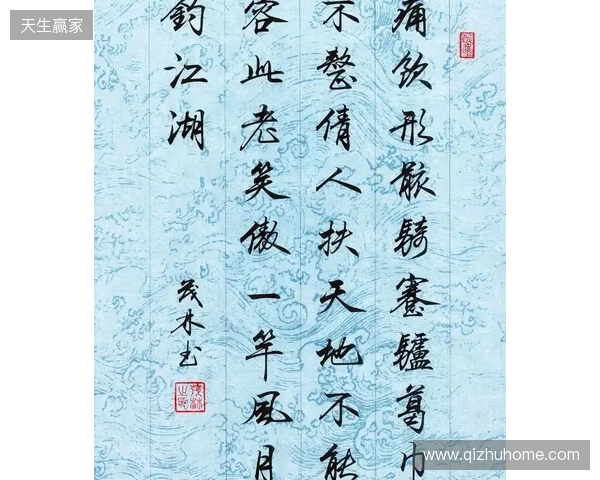 天生赢家
痛饮形骸骑蹇驴葛巾
不整倩人扶天地不能
容此老笑傲一竿风月
钓江湖
茂林书
www.qizhuhome.com